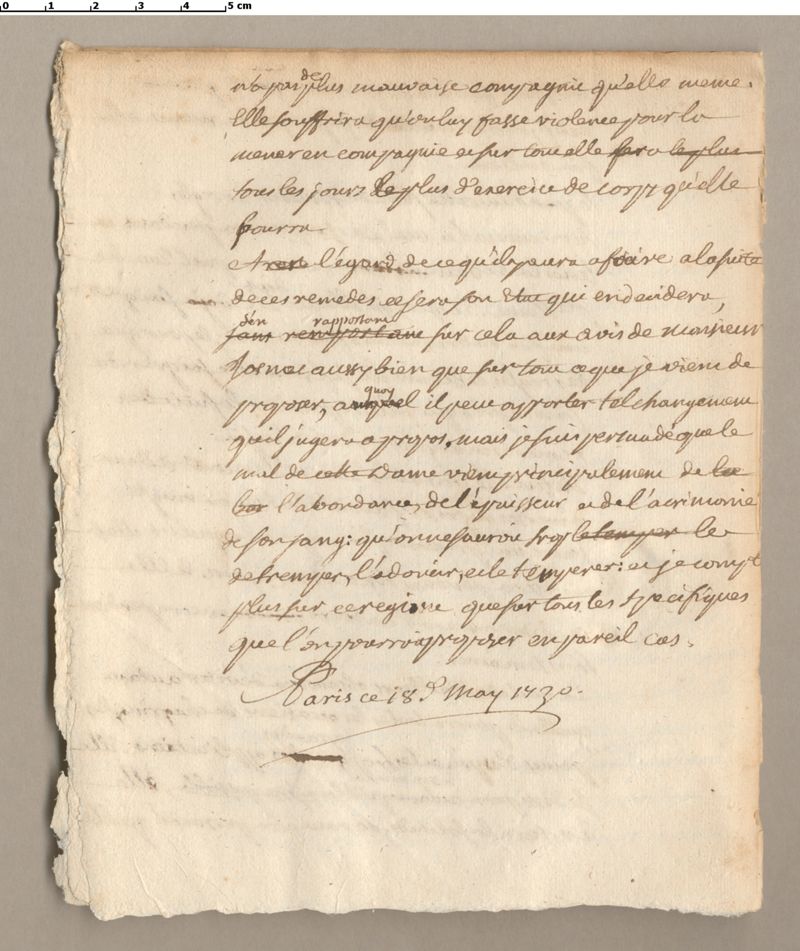 0 1 2 3 4 5 cm
n'a pas de plus mauvaise compagnie qu'elle meme.
Elle souffrira qu'on luy fasse violence pour la
mener en compagnie et sur tout elle fera le plus
tous les jours le plus d'exercice de corps qu'elle
pourra.
et l'égard de ce qu'il y aura a faire a la suite
de ces remedes ce sera son Etat qui en decidera,
s'en rapportant
sans sur cela aux avis de Monsieur
aussy bien que sur tout ce que je viens de
proposer, a quoy il peut apporter tel changement
qu'il jugera a propos, mais je suis persuadé que le
mal de cette Dame vient principalement de
l'abondance, de l'épaisseur et de l'acrimonie
de son sang: qu'on ne sauroit trop le temper le
detremper, l'adoucir, et le temperer: et je compte
plus sur ce regime que sur tous les specifiques
que l'on pourroit proposer en pareil cas.
Paris ce 18.e May 1730.